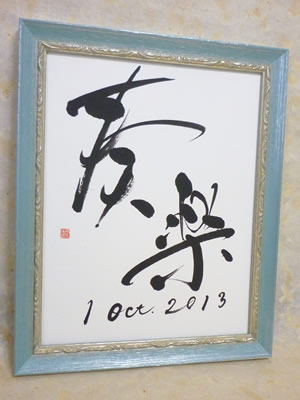 奏
楽
1 Oct. 2013